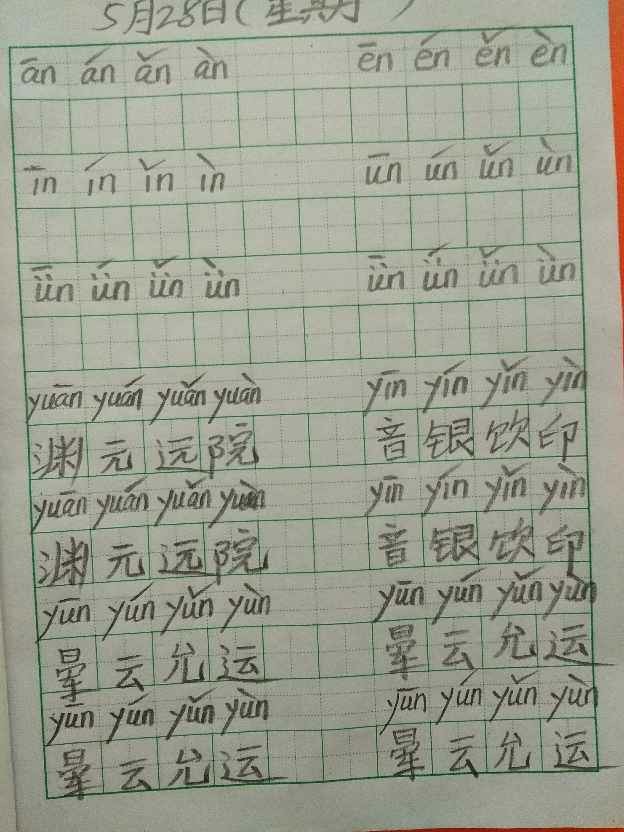 5月28日(星期 )
ān án ǎn àn ēn én ěn èn
īn ín ǐn ìn ūn ún ǔn ùn
ǖn ǘn ǚn ǜn ǖn ǘn ǚn ǜn
yuān yuán yuǎn yuàn yīn yín yǐn yìn
渊 元 远 院 音 银 饮 印
yuān yuán yuǎn yuàn yīn yín yǐn yìn
渊 元 远 院 音 银 饮 印
yūn yún yǔn yùn yūn yún yǔn yùn
晕 云 允 运 晕 云 允 运
yūn yún yǔn yùn yūn yún yǔn yùn
晕 云 允 运 晕 云 允 运